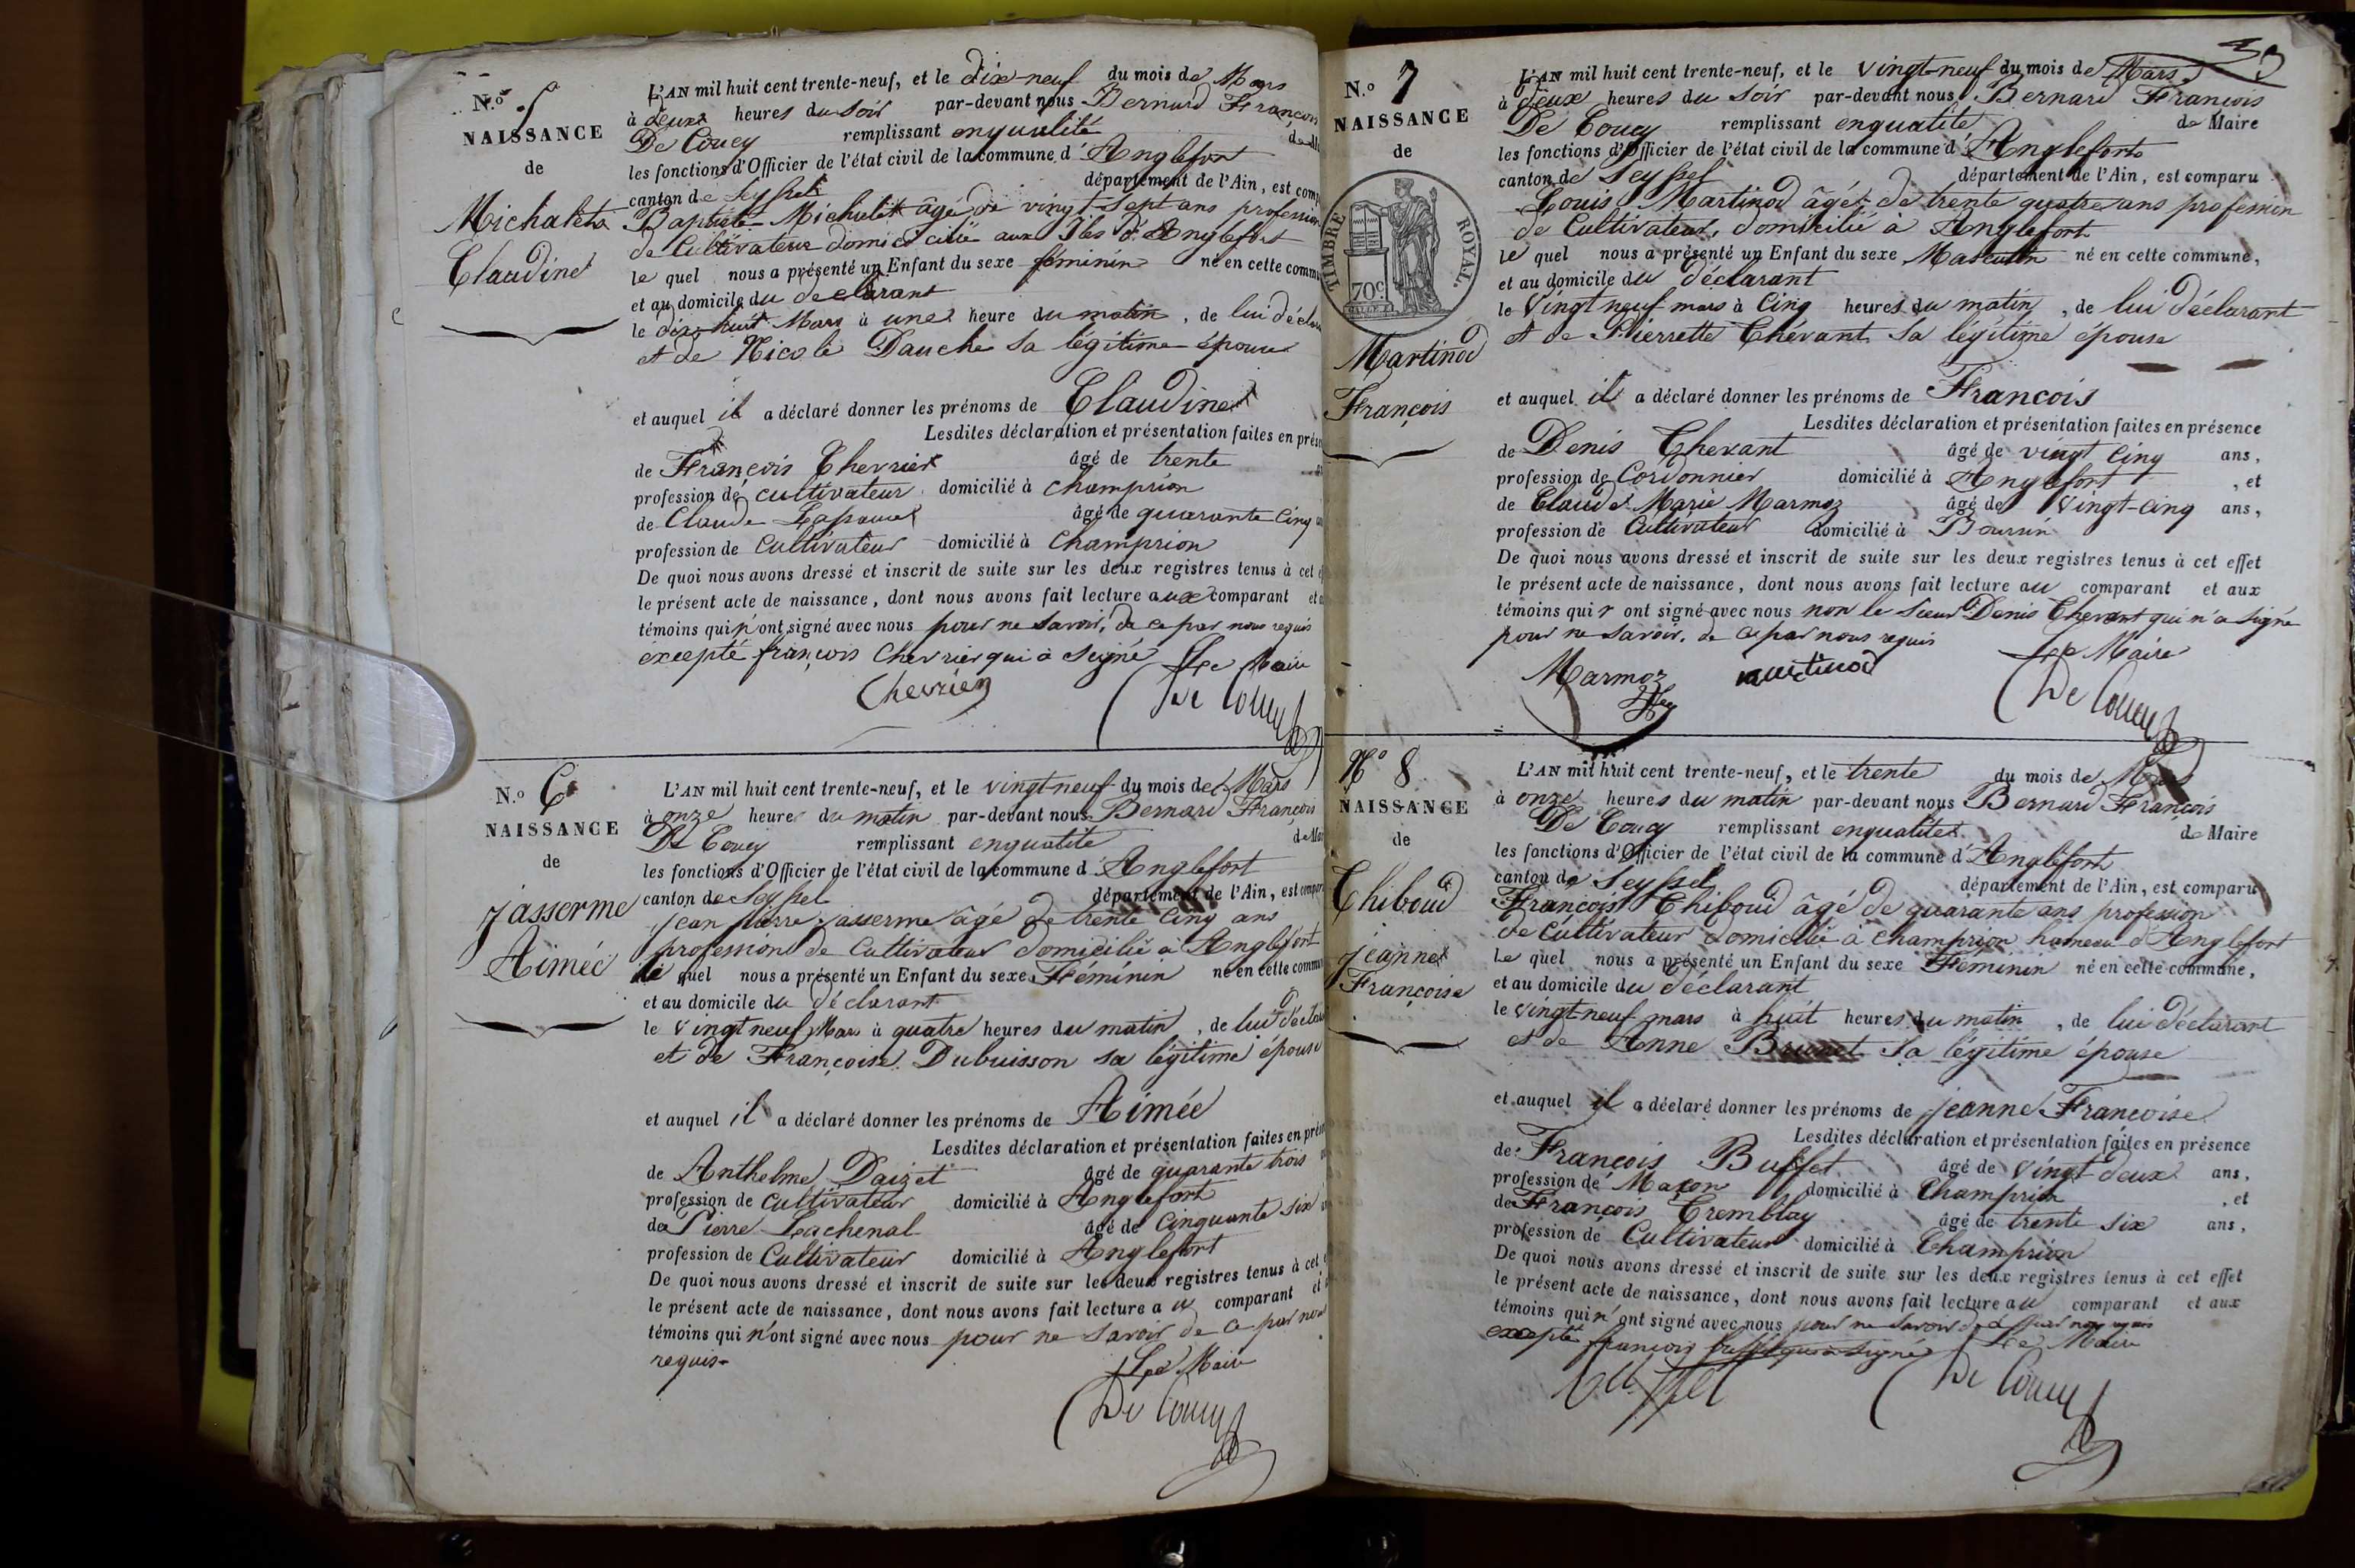 N.o 5
NAISSANCE
de
Michalet
Claudine
L'AN mil huit cent trente-neuf, et le dix-neuf du mois de Mars
à deux heures du soir par-devant nous Bernard François
De Coucy remplissant enqualité de
les fonctions d'Officier de l'état civil de la commune d'Anglefort
canton de Seyssel département de l'Ain, est comp
Baptiste Michalet âgé de vingt-sept ans profession
de Cultivateur domicilié aux Iles d'Anglefort
le quel nous a présenté un Enfant du sexe féminin né en cette commu
et au domicile du declarant
le dix-huit Mars à une heure du matin, de lui décla
et de Nicole Dauche sa légitime épouse
et auquel il a déclaré donner les prénoms de Claudine
Lesdites déclaration et présentation faites en prése
de François Chevrier âgé de trente
profession de cultivateur domicilié à champrion
de Claude âgé de quarante Cinq
profession de Cultivateur domicilié à Champrion
De quoi nous avons dressé et inscrit de suite sur les deux registres tenus à cet
le présent acte de naissance, dont nous avons fait lecture aux comparant et
témoins qui n'ont signé avec nous pour ne savoir, de ce par nous requis
excepté françois Chevrier qui a signé Le Maire
Chevrier De Coucy
N.o 6
NAISSANCE
de
jasserme
Aimée
L'AN mil huit cent trente-neuf, et le vingt-neuf du mois de Mars
à onze heures du matin par-devant nous Bernard François
De Coucy remplissant enqualité de
les fonctions d'Officier de l'état civil de la commune d'Anglefort
canton de Seyssel département de l'Ain, est compar
jean pierre jasserme âgé de trente Cinq ans
profession de Cultivateur domicilié à Anglefort
le quel nous a présenté un Enfant du sexe Féminin né en cette commu
et au domicile du déclarant
le vingt neuf Mars à quatre heures du matin, de lui déclar
et de Françoise Dubuisson sa légitime épouse
et auquel il a déclaré donner les prénoms de Aimée
Lesdites déclaration et présentation faites en prése
de Anthelme Daizet âgé de quarante trois
profession de cultivateur domicilié à Anglefort
de Pierre Lachenal âgé de Cinquante six
profession de Cultivateur domicilié à Anglefort
De quoi nous avons dressé et inscrit de suite sur les deux registres tenus à cet
le présent acte de naissance, dont nous avons fait lecture au comparant et
témoins qui n'ont signé avec nous pour ne savoir de ce par nous
requis Le Maire
De Coucy
N.o 7
NAISSANCE
de
TIMBRE ROYAL.
70c
Martinod
François
L'AN mil huit cent trente-neuf, et le vingt-neuf du mois de Mars
à deux heures du soir par-devant nous Bernard François
De Coucy remplissant enqualité de Maire
les fonctions d'Officier de l'état civil de la commune d'Anglefort
canton de Seyssel département de l'Ain, est comparu
Louis Martinod âgé de trente quatre ans profession
de Cultivateur, domicilié à Anglefort
le quel nous a présenté un Enfant du sexe Masculin né en cette commune,
et au domicile du déclarant
le Vingt neuf mars à Cinq heures du matin, de lui déclarant
et de Pierrette Chevant sa légitime épouse
et auquel il a déclaré donner les prénoms de François
Lesdites déclaration et présentation faites en présence
de Denis Chevant âgé de vingt Cinq ans,
profession de Cordonnier domicilié à Anglefort, et
de Claude Marie Marmoz âgé de Vingt-cinq ans,
profession de Cultivateur domicilié à
De quoi nous avons dressé et inscrit de suite sur les deux registres tenus à cet effet
le présent acte de naissance, dont nous avons fait lecture au comparant et aux
témoins qui ont signé avec nous non le sieur Denis Chevant qui n'a signé
pour ne savoir, de ce par nous requis
Le Maire
Marmoz martinod De Coucy
No 8
NAISSANCE
de
Thiboud
jeanne
Françoise
L'AN mil huit cent trente-neuf, et le trente du mois de Mars
à onze heures du matin par-devant nous Bernard François
De Coucy remplissant enqualité de Maire
les fonctions d'Officier de l'état civil de la commune d'Anglefort
canton de Seyssel département de l'Ain, est comparu
François Thiboud âgé de quarante ans profession
de cultivateur domicilié à champrion hameau d'Anglefort
le quel nous a présenté un Enfant du sexe Féminin né en cette commune,
et au domicile du déclarant
le vingt-neuf mars à huit heures du matin, de lui déclarant
et de Anne Brunet sa légitime épouse
et auquel il a déclaré donner les prénoms de jeanne Françoise
Lesdites déclaration et présentation faites en présence
de François Buffet âgé de Vingt deux ans,
profession de Maçon domicilié à Champrion, et
de François Tremblay âgé de trente six ans,
profession de Cultivateur domicilié à Champrion
De quoi nous avons dressé et inscrit de suite sur les deux registres tenus à cet effet
le présent acte de naissance, dont nous avons fait lecture au comparant et aux
témoins qui n'ont signé avec nous pour ne savoir de ce par nous requis
excepté françois buffet qui a signé Le Maire
buffet De Coucy